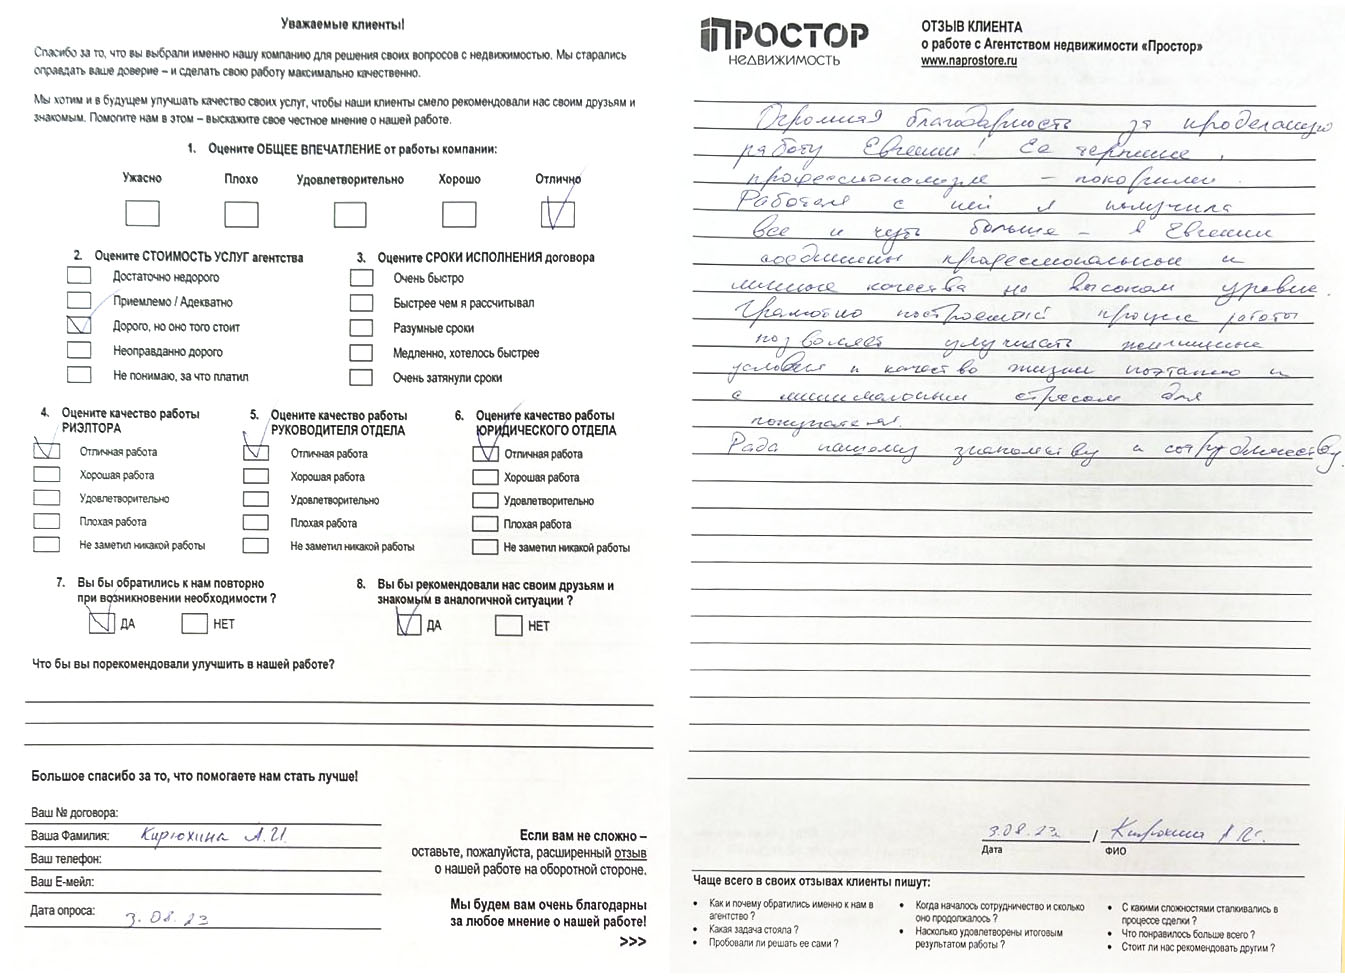 Уважаемые клиенты!
Спасибо за то, что вы выбрали именно нашу компанию для решения своих вопросов с недвижимостью. Мы старались
оправдать ваше доверие – и сделать свою работу максимально качественно.
Мы хотим и в будущем улучшать качество своих услуг, чтобы наши клиенты смело рекомендовали нас своим друзьям и
знакомым. Помогите нам в этом – выскажите свое честное мнение о нашей работе.
1. Оцените ОБЩЕЕ ВПЕЧАТЛЕНИЕ от работы компании:
Ужасно Плохо Удовлетворительно Хорошо Отлично
2. Оцените СТОИМОСТЬ УСЛУГ агентства
Достаточно недорого
Приемлемо / Адекватно
Дорого, но оно того стоит
Неоправданно дорого
Не понимаю, за что платил
3. Оцените СРОКИ ИСПОЛНЕНИЯ договора
Очень быстро
Быстрее чем я рассчитывал
Разумные сроки
Медленно, хотелось быстрее
Очень затянули сроки
4. Оцените качество работы
РИЭЛТОРА
Отличная работа
Хорошая работа
Удовлетворительно
Плохая работа
Не заметил никакой работы
5. Оцените качество работы
РУКОВОДИТЕЛЯ ОТДЕЛА
Отличная работа
Хорошая работа
Удовлетворительно
Плохая работа
Не заметил никакой работы
6. Оцените качество работы
ЮРИДИЧЕСКОГО ОТДЕЛА
Отличная работа
Хорошая работа
Удовлетворительно
Плохая работа
Не заметил никакой работы
7. Вы бы обратились к нам повторно
при возникновении необходимости ?
ДА НЕТ
8. Вы бы рекомендовали нас своим друзьям и
знакомым в аналогичной ситуации ?
ДА НЕТ
Что бы вы порекомендовали улучшить в нашей работе?
Большое спасибо за то, что помогаете нам стать лучше!
Ваш № договора:
Ваша Фамилия: Кирюхина А.И.
Ваш телефон:
Ваш Е-мейл:
Дата опроса: 3.08.23
Если вам не сложно –
оставьте, пожалуйста, расширенный отзыв
о нашей работе на оборотной стороне.
Мы будем вам очень благодарны
за любое мнение о нашей работе!
>>>
ПРОСТОР
НЕДВИЖИМОСТЬ
ОТЗЫВ КЛИЕНТА
о работе с Агентством недвижимости «Простор»
www.naprostore.ru
Огромная благодарность за проделанную
работу Евгении! Ее терпение,
профессионализм – покорили.
Работая с ней я получила
все и чуть больше – в Евгении
соединены профессиональные и
личные качества на высоком уровне.
Грамотно построенный процесс работы
позволяет улучшать жилищные
условия и качество жизни поэтапно и
с минимальным стрессом для
покупателя.
Рада нашему знакомству и сотрудничеству.
3.08.23г / Кирюхина А.И.
Дата ФИО
Чаще всего в своих отзывах клиенты пишут:
• Как и почему обратились именно к нам в
агентство ?
• Какая задача стояла ?
• Пробовали ли решать ее сами ?
• Когда началось сотрудничество и сколько
оно продолжалось ?
• Насколько удовлетворены итоговым
результатом работы ?
• С какими сложностями сталкивались в
процессе сделки ?
• Что понравилось больше всего ?
• Стоит ли нас рекомендовать другим ?